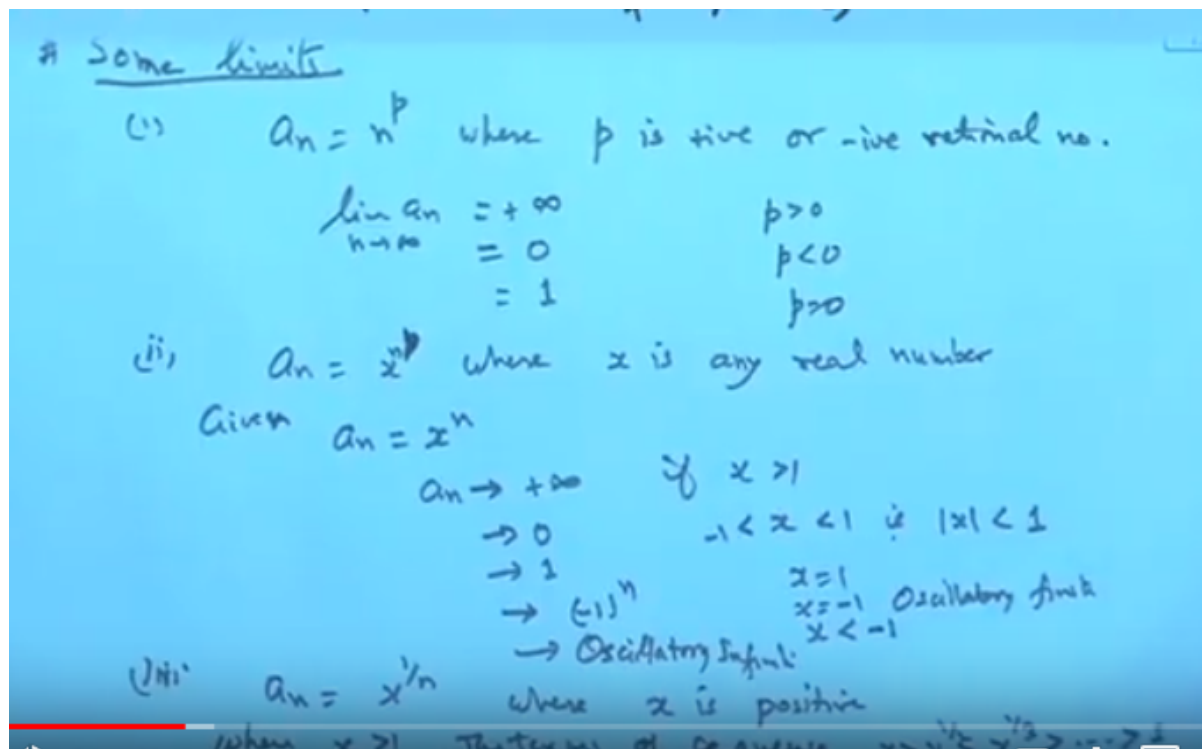 # Some limits
(i) an = n^p where p is +ive or -ive rational no.
lim an = + ∞ p>0
n→∞ = 0 p<0
= 1 p=0
(ii) an = x^n where x is any real number
Given an = x^n
an → +∞ if x >1
→ 0 -1< x <1 ie |x| < 1
→ 1 x=1
→ (-1)^n x=-1 Oscillatory finite
→ Oscillatory Infinite x < -1
(iii) an = x^1/n where x is positive
when x >1 The terms of